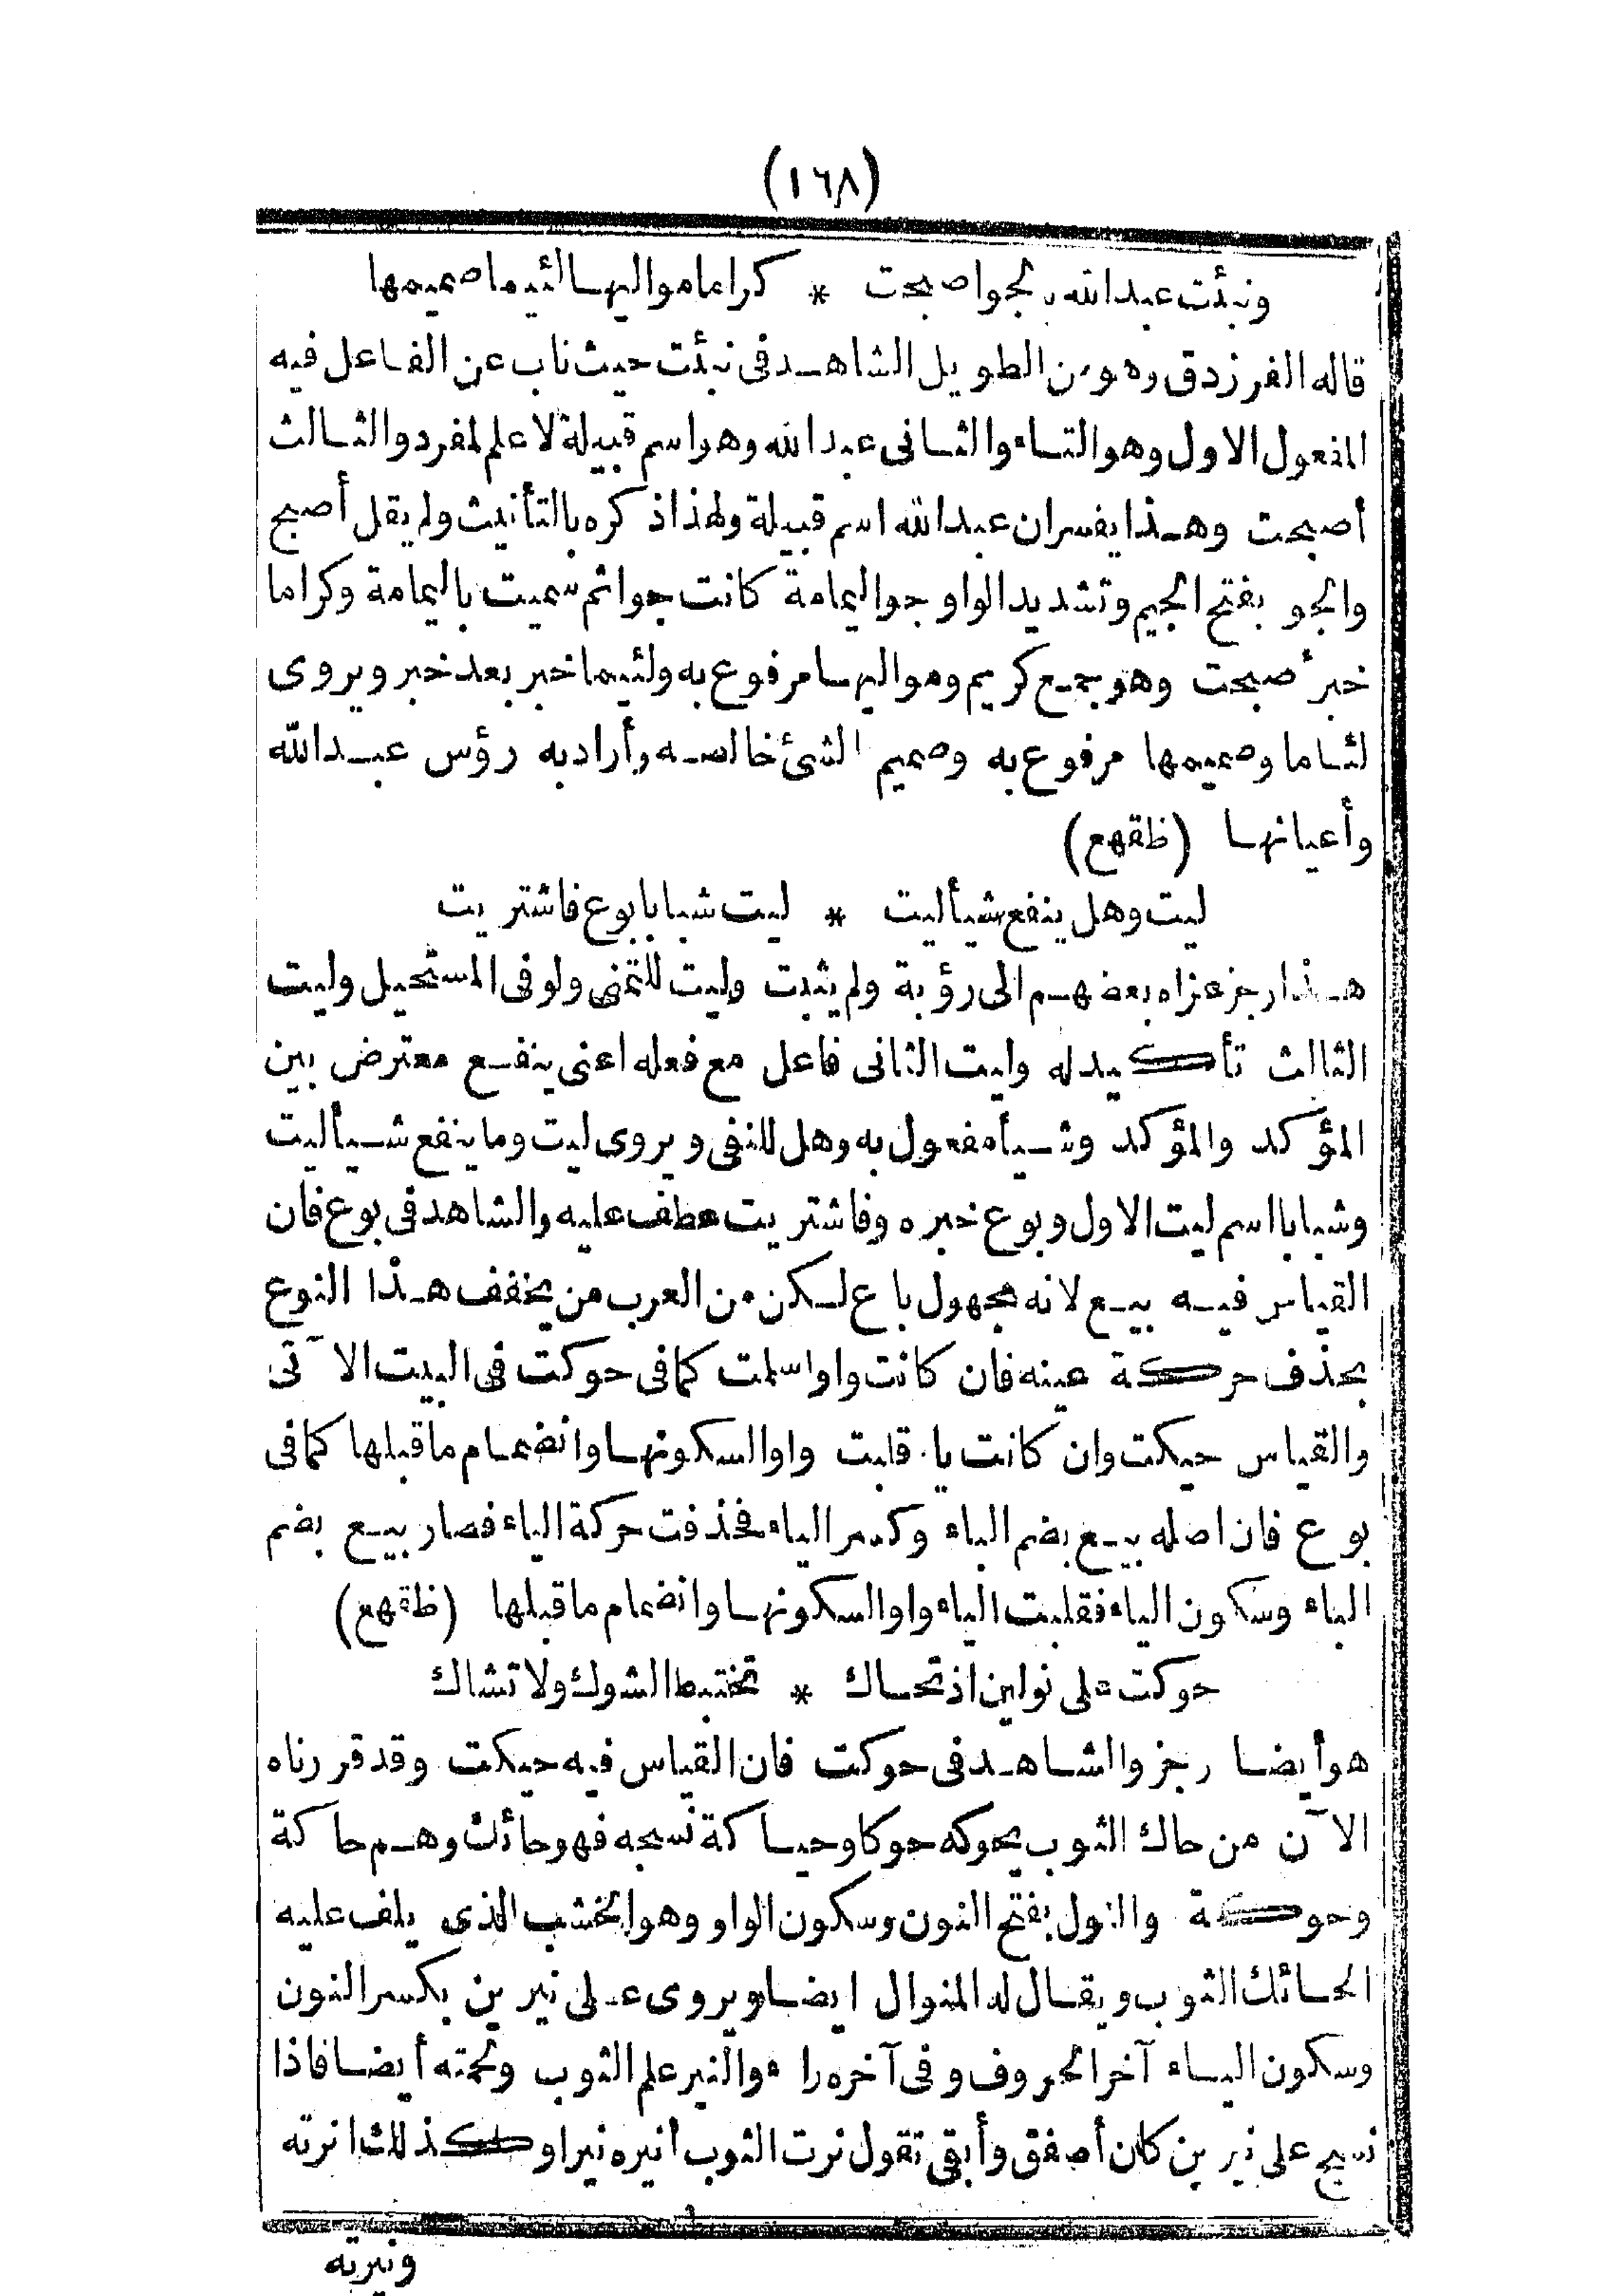 (١٦٨)
ونبئت عبدالله بالجو اصبحت * كراما مواليها لئيما صميمها
قاله الفرزدق وهو من الطويل الشاهد فى نبئت حيث ناب عن الفاعل فيه
المفعول الاول وهو التاء والثانى عبدالله وهو اسم قبيلة لا علم لمفرد والثالث
أصبحت وهذا يفسر ان عبدالله اسم قبيلة ولهذا ذكره بالتأنيث ولم يقل أصبح
والجو بفتح الجيم وتشديد الواو جو اليمامة كانت جوا ثم سميت باليمامة وكراما
خبر أصبحت وهو جمع كريم ومواليها مرفوع به ولئيما خبر بعد خبر ويروى
لئاما وصميمها مرفوع به وصميم الشئ خالصه وأراد به رؤس عبدالله
وأعيانها (ظقهع)
ليت وهل ينفع شيأ ليت * ليت شبابا بوع فاشتريت
هذا رجز عزاه بعضهم الى رؤبة ولم يثبت وليت للتمنى ولو فى المستحيل وليت
الثالث تأكيد له وليت الثانى فاعل مع فعله اعنى ينفع معترض بين
المؤكد والمؤكد وشيأ مفعول به وهل للنفى ويروى ليت وما ينفع شيأ ليت
وشبابا اسم ليت الاول وبوع خبره وفاشتريت عطف عليه والشاهد فى بوع فان
القياس فيه بيع لانه مجهول باع لكن من العرب من يخفف هذا النوع
بحذف حركة عينه فان كانت واوا سلمت كما فى حوكت فى البيت الآتى
والقياس حيكت وان كانت ياء قلبت واوا لسكونها وانضمام ما قبلها كما فى
بوع فان اصله بيع بضم الباء وكسر الياء فحذفت حركة الياء فصار بيع بضم
الباء وسكون الياء فقلبت الياء واوا لسكونها وانضمام ما قبلها (ظقهع)
حوكت على نولين اذ تحاك * تختبط الشوك ولا تشاك
هو أيضا رجز والشاهد فى حوكت فان القياس فيه حيكت وقد قررناه
الآن من حاك الثوب يحوكه حوكا وحياكة نسجه فهو حائك وهم حاكة
وحوكة والنول بفتح النون وسكون الواو وهو الخشب الذى يلف عليه
الحائك الثوب ويقال له المنوال ايضا ويروى على نيرين بكسر النون
وسكون الياء آخر الحروف وفى آخره راء والنير علم الثوب ولحمته أيضا فاذا
نسج على نيرين كان أصفق وأبقى تقول نرت الثوب أنيره نيرا وكذلك انرته
ونيرته